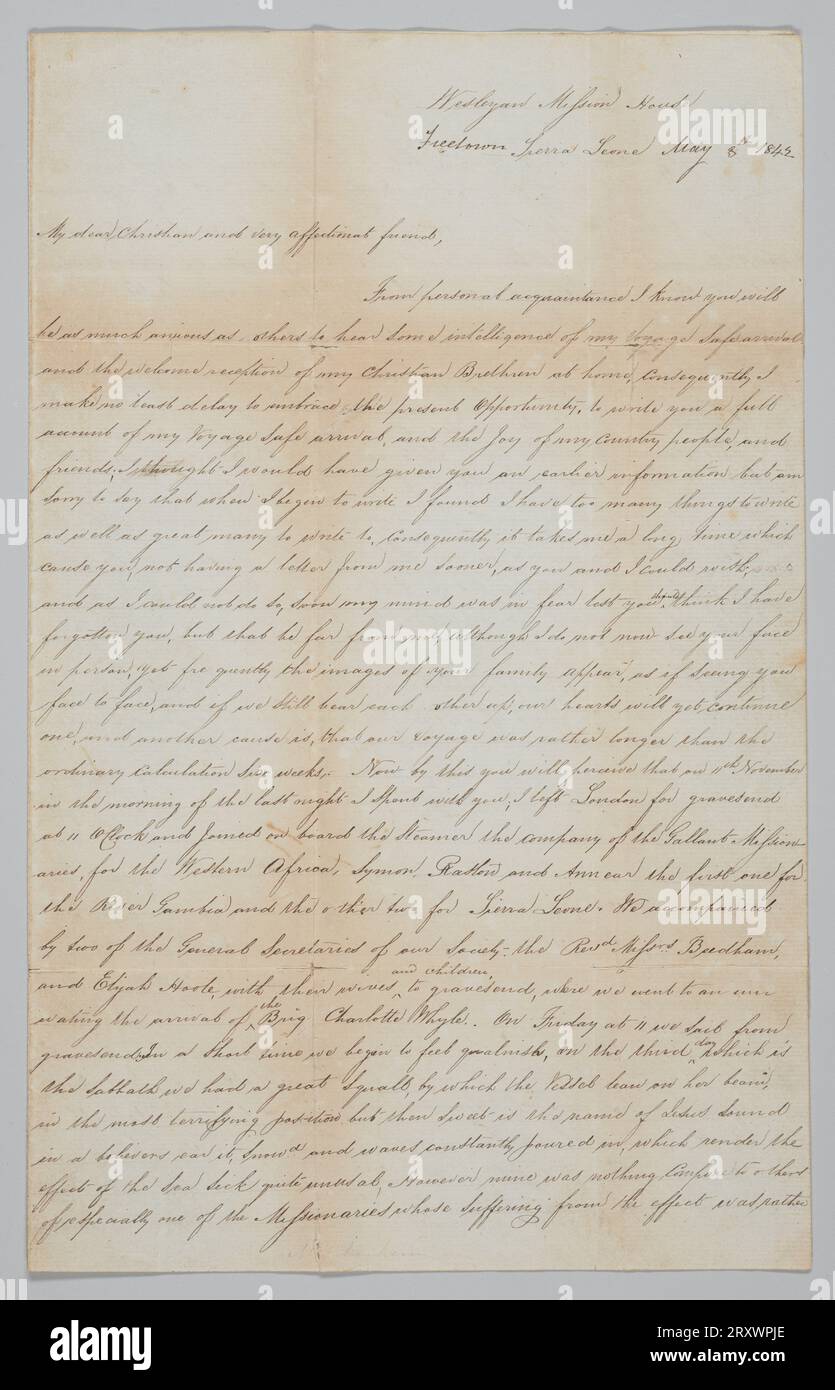 Wesleyan Mission House
Freetown Sierra Leone May 8th 1842
My dear Christian and very affectionat friend,
From personal acquaintance I know you will
be as much anxious as others to hear some intelligence of my Voyage Safe arrival
and the welcome reception of my Christian Brethren at home, consequently I
make no least delay to embrace the present Opportunity, to write you a full
account of my Voyage Safe arrival, and the Joy of my Country people, and
friends, I thought I would have given you an earlier information but am
Sorry to say that when I begin to write I found I have too many things to write
as well as great many to write to, consequently it takes me a long time which
cause you, not having a letter from me sooner, as you and I could wish,
and as I could not do so, soon my mind was in fear lest you should think I have
forgotten you, but that be far from me, although I do not now see your face
in person, yet frequently the images of your family appear, as if seeing you
face to face, and if we still bear each other up, our hearts will yet continue
one, and another cause is, that our voyage was rather longer than the
ordinary calculation Six weeks. Now by this you will perceive that on 11th November
in the morning of the last night I spent with you, I left London for gravesend
at 11 O'Clock and Joined on board the Steamer the company of the Gallant Mission
aries, for the Western Africa, Symon, Raston and Annear the first one for
the River Gambia and the other two for Sierra Leone. We accompanied
by two of the General Secretaries of our Society- the Revd Messrs Beedham,
and Elijah Hoole, with their wives and children, to gravesend, where we went to an inn
wating the arrival of the Brig Charlotte Whyle. On Friday at 11 we sail from
gravesend, In a short time we begin to feel qualmish, on the third day which is
the Sabbath we had a great Squall by which the Vessel lean on her beam,
in the most terrifying position but then Sweet is the name of Jesus Sound
in a believers ear it, Snowd and waves constantly poured in, which render the
effect of the Sea Sick quite unusal, However mine was nothing Compire to others
of especially one of the Missionaries whose suffering from the effect was rather
alamy
Image ID: 2RXWPJE
www.alamy.com